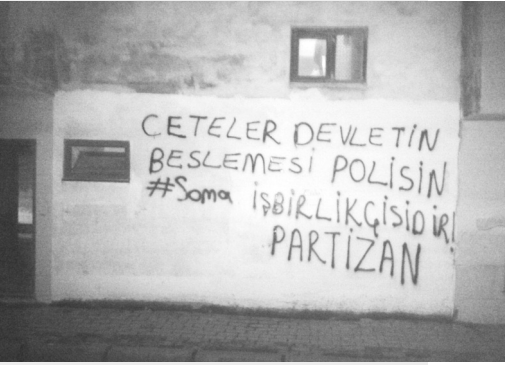 CETELER DEVLETİN
BESLEMESİ POLİSİN
#Soma İŞBİRLİKÇİSİDİR!
PARTİZAN